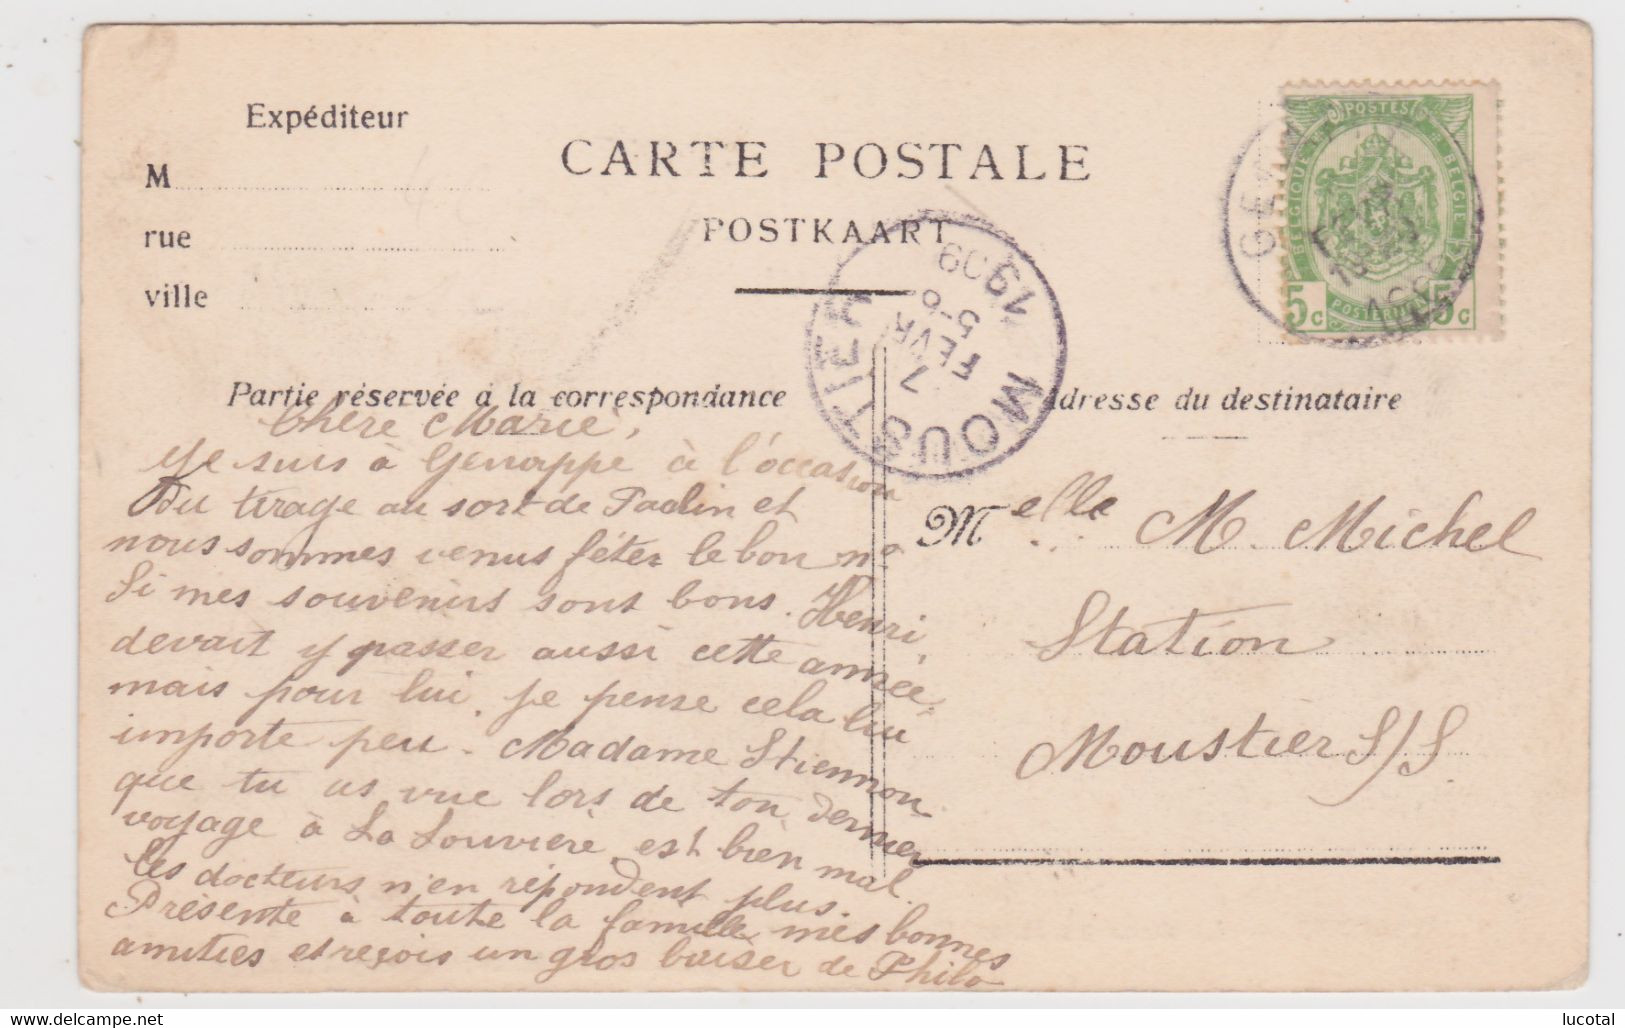 Expéditeur
M
rue
ville
CARTE POSTALE
POSTKAART
POSTES
BELGIQUE
BELGIE
5c 5c
MOUSTIER
7
FEVR
5-6
1909
Partie réservée à la correspondance
Adresse du destinataire
Chère Marie,
Je suis à Genappe à l'occasion
Du tirage au sort de Paolin et
nous sommes venus fêter le bon n°
Si mes souvenirs sont bons. Henri,
devait y passer aussi cette année,
mais pour lui, je pense cela lui
importe peu. Madame Stiennon
que tu as vue lors de ton dernier
voyage à La Louvière est bien mal.
les docteurs n'en répondent plus.
Présente à toute la famille mes bonnes
amitiés et reçois un gros baiser de Philo
Melle M. Michel
Station
Moustier S/S.
lucotal